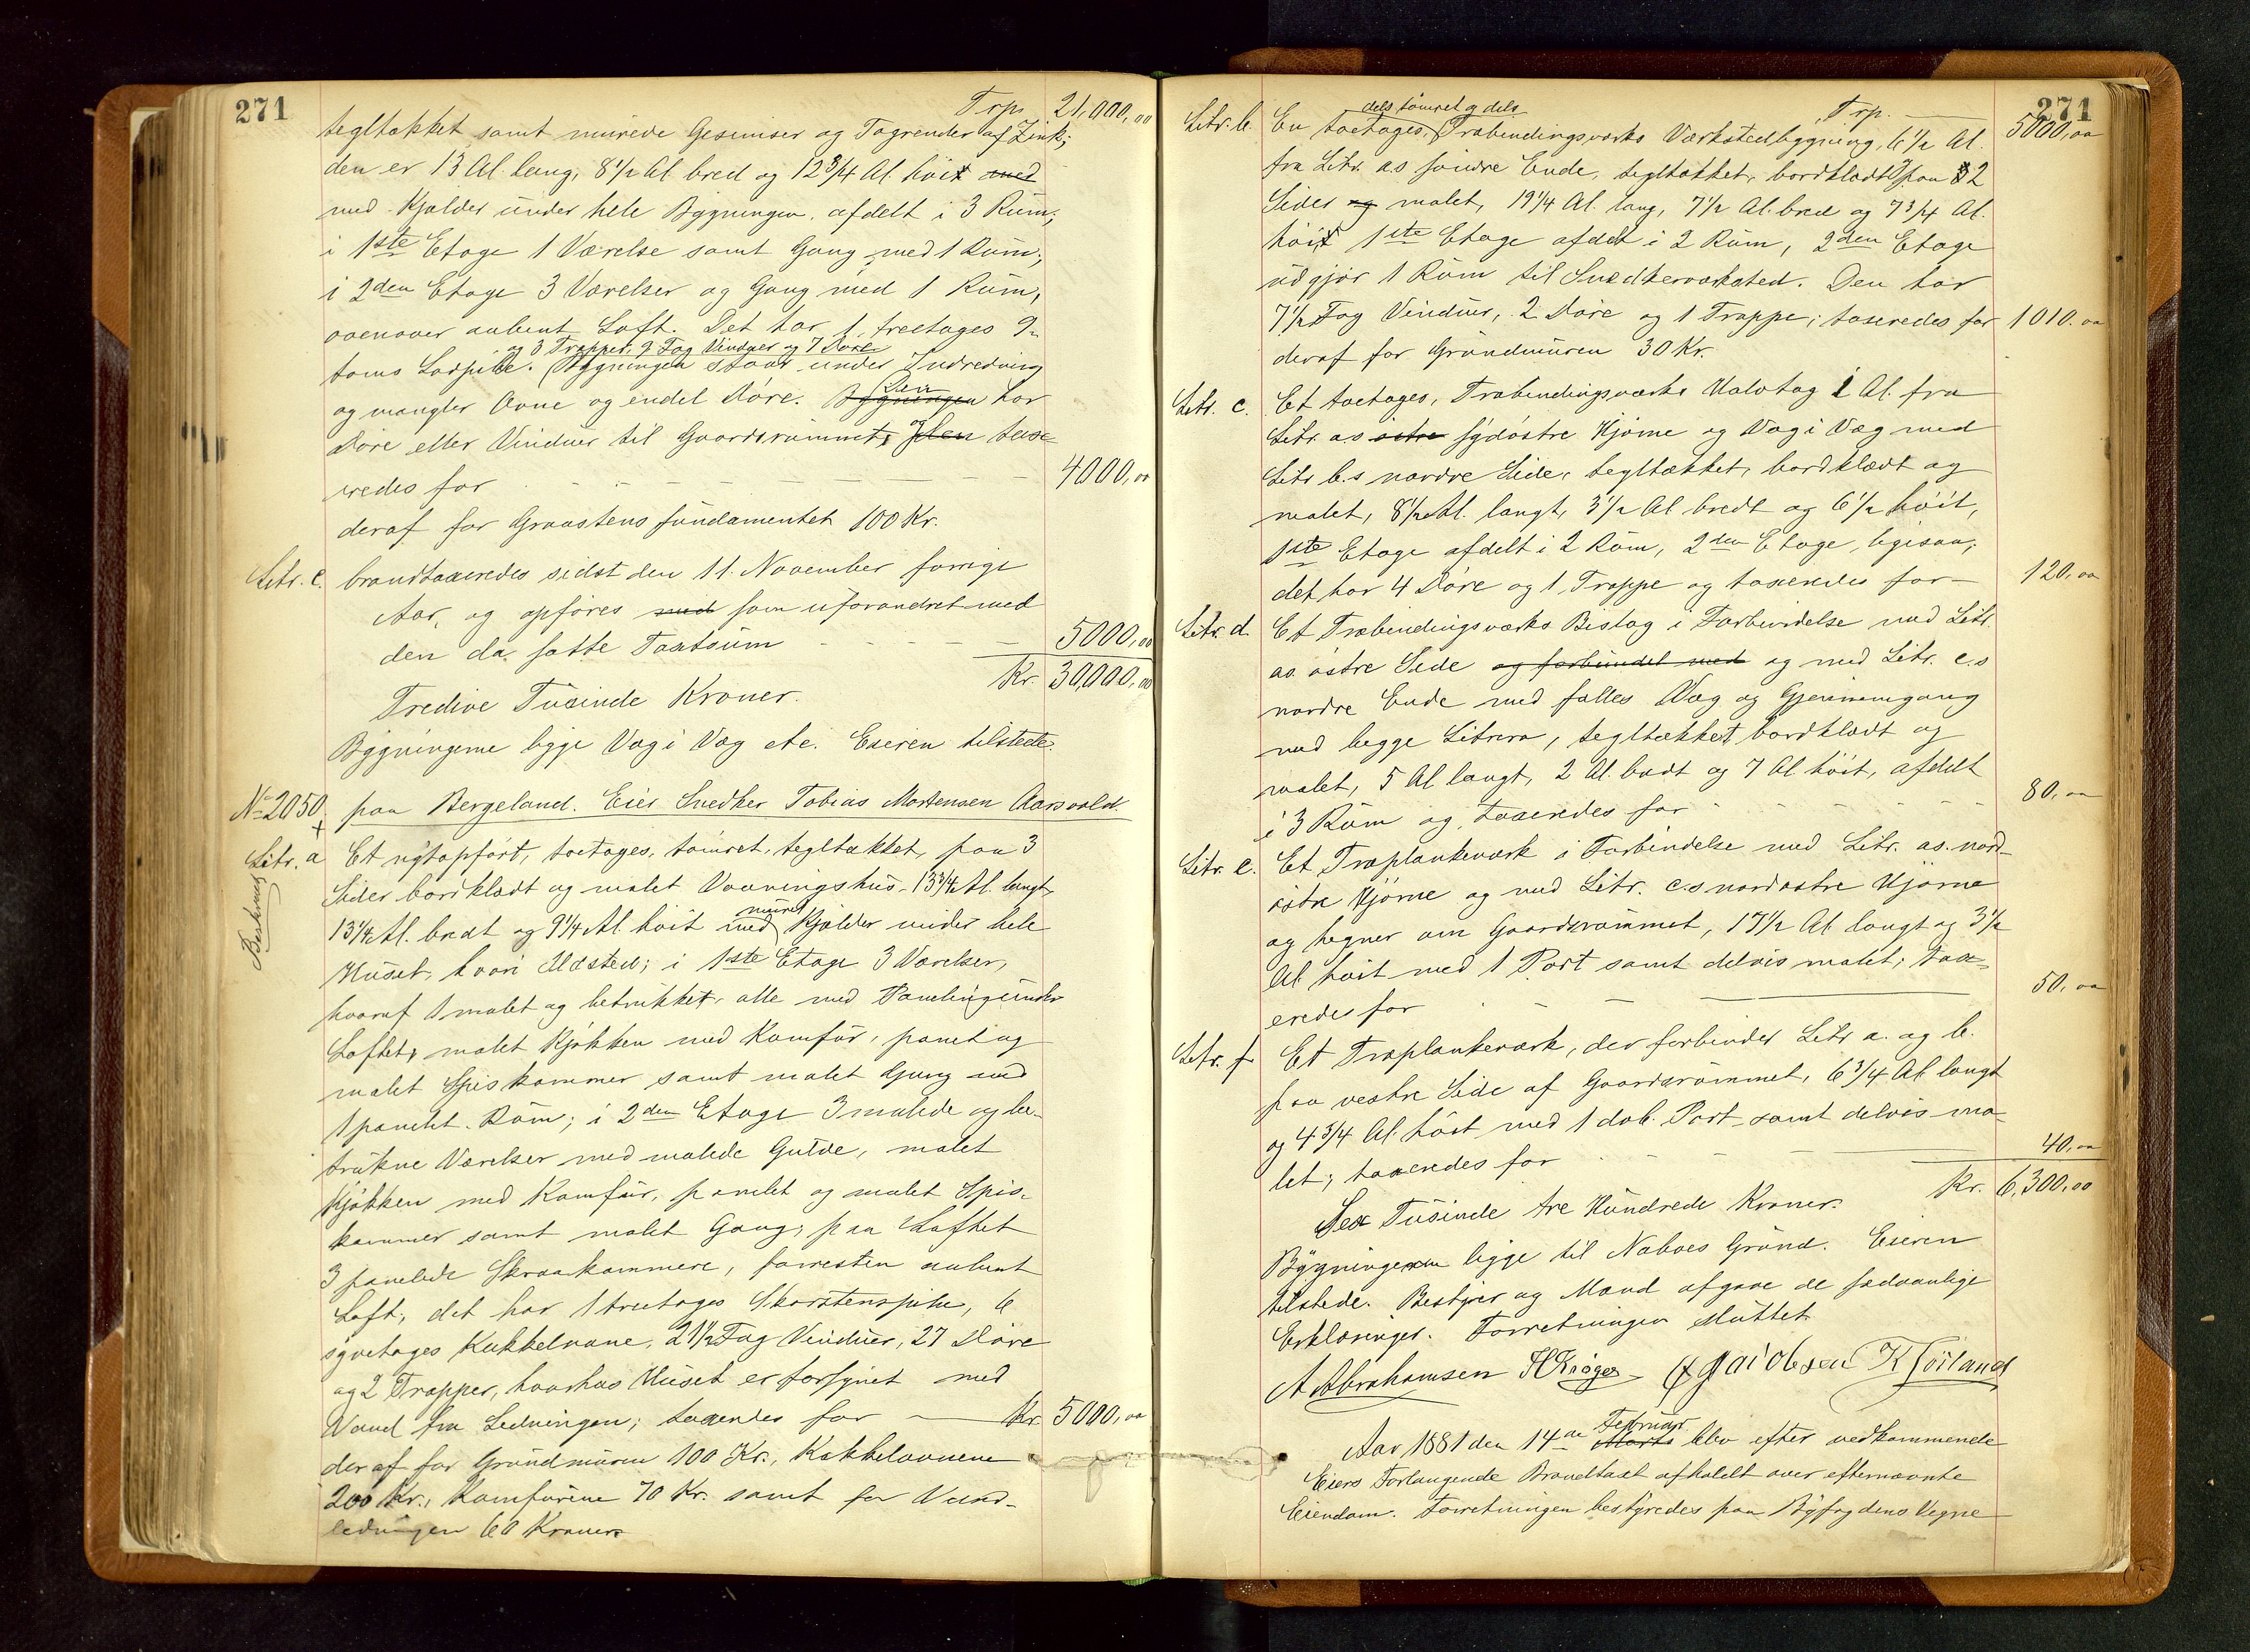 271
Trp. 21,000,00
tegltækket samt murede Gesimser og Tagrender af Zink;
den er 13 Al. lang, 8½ Al. bred og 12¾ Al. høi med
med Kjælder under hele Bygningen, afdelt i 3 Rum;
i 1ste Etage 1 Værelse samt Gang med 1 Rum;
i 2den Etage 3 Værelser og Gang med 1 Rum,
ovenover aabent Loft. Det har 1 treetages 9"
og 3 Trapper, 9 Fag Vinduer og 7 Døre
toms Lodpibe. Bygningen staar under Indredning
og mangler Ovne og endel Døre. Bygningen Den har
Døre eller Vinduer til Gaardsrummet, og Den taxe-
redes for 4000,00
deraf for Graastensfundamentet 100 Kr.
Litr. c. brandtaxeredes sidst den 11. November forrige
Aar, og opføres med som uforandret med
den da satte Taxtsum 5000,00
Kr. 30,000,00
Tredive Tusinde Kroner.
Bygningerne ligge Væg i Væg etc. Eieren tilstede.
No 2050 paa Bergeland. Eier Snedker Tobias Mortensen Aarsvold.
Litr. a Et nyt opført, toetages, tømret, tegltækket, paa 3
Sider bordklædt og malet Vaaningshus, 13¾ Al. langt,
13¼ Al. bredt og 9¼ Al. høit med muret Kjælder under hele
Huset, hvori Ildsted; i 1ste Etage 3 Værelser,
hvoraf 1 malet og betrukket, alle med Paneling under
Loftet, malet Kjøkken med Komfur, panelt og
malet Spiskammer samt malet Gang med
1 panelet Rum; i 2den Etage 3 malede og be-
trukne Værelser med malede Gulve, malet
Kjøkken med Komfur, panelet og malet Spis-
kammer samt malet Gang; paa Loftet
3 panelede Skraakammere, forresten aabent
Loft; det har 1 treetages Skorstenspibe, 6
syvetages Kakkelovne, 21½ Fag Vinduer, 27 Døre
og 2 Trapper, hvorhos Huset er forsynet med
Vand fra Ledningen; taxeredes for Kr. 5000,00
deraf for Grundmuren 100 Kr., Kakkelovnene
200 Kr., Komfurene 70 Kr. samt for Vand-
ledningen 60 Kroner.
271
Trp. 5000,00
dels tømret og dels
Litr. b. En toetages, Træbindingsværks Værkstedbygning, 6½ Al.
fra Litr. a.s søndre Ende, tegltækket, bordklædt paa 2
Sider og malet, 19¼ Al. lang, 7½ Al. bred og 7¾ Al.
høi, 1ste Etage afdelt i 2 Rum, 2den Etage
udgjør 1 Rum til Snedkerværksted. Den har
7½ Fag Vinduer, 2 Døre og 1 Trappe; taxeredes for 1010.00
deraf for Grundmuren 30 Kr.
Litr. c. Et toetages, Træbindingsværks Halvtag 1 Al. fra
Litr. a.s østre sydøstre Hjørne og Væg i Væg med
Litr b.s nordre Side, tegltækket, bordklædt og
malet, 8½ Al. langt, 3½ Al bredt og 6½ høit,
1ste Etage afdelt i 2 Rum, 2den Etage ligesaa;
det har 4 Døre og 1 Trappe og taxeredes for 120,00
Litr. d. Et Træbindingsværks Bislag i Forbindelse med Litr.
a.s østre Side og forbundet med og med Litr. c.s
nordre Ende med fælles Væg og Gjennemgang
med begge Litrera, tegltækket bordklædt og
malet, 5 Al langt, 2 Al. bredt og 7 Al høit, afdelt
i 3 Rum og taxeredes for 80,00
Litr. e. Et Træplankeværk i Forbindelse med Litr. a.s nord-
østre Hjørne og med Litr. c.s nordøstre Hjørne
og hegner om Gaardsrummet, 17½ Al. langt og 3½
Al. høit med 1 Port samt delvis malet; taxe-
redes for 50,00
Litr. f. Et Træplankeværk, der forbinder Litr a. og b.
paa vestre Side af Gaardsrummet, 6¾ Al. langt
og 4¾ Al. høit med 1 dob. Port samt delvis ma-
let; taxeredes for 40,00
Kr. 6,300,00
Sex Tusinde tre Hundrede Kroner.
Bygningerne ligge til Naboes Grund. Eieren
tilstede. Bestyrer og Mænd afgave de sædvanlige
Erklæringer. Forretningen sluttet
A Abrahamsen H Krøger Jacobsen K Tørland
Aar 1881 den 14de Marts Februar blev efter vedkommende
Eiers Forlangende Brandtaxt afholdt over efternævnte
Eiendom. Forretningen bestyredes paa Byfogdens Vegne